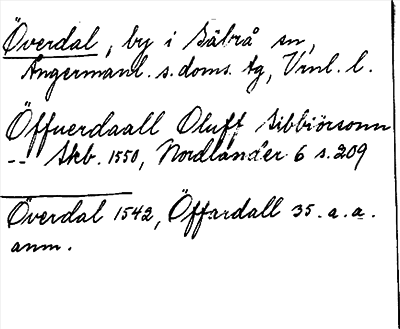 Överdal, by i Säbrå sn,
Ångermanl. s. doms. tg, Vrnl. l.
Öffuerdaall Oluff Sibbiörsonn
-- Skb. 1550, Nordlander 6 s. 209
Överdal 1542, Öffardall 35. a. a.
anm.